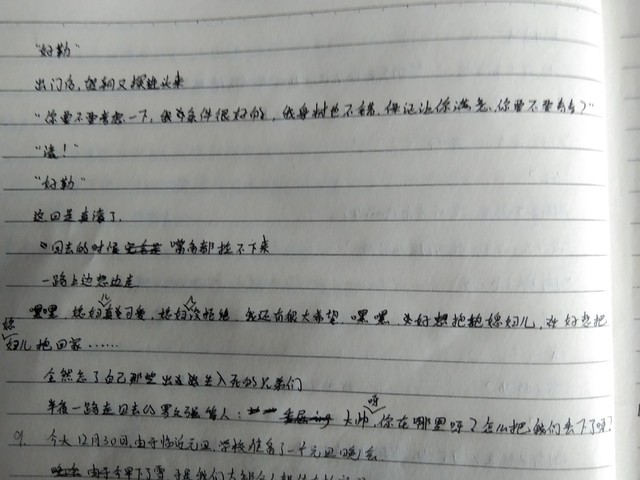 “好勤”
出门后,趄趔又探进头来
“你要不要考虑一下,我家条件很好的,我身材也不错,保证让你满意,你要不要看看?”
“滚!”
“好勤”
这回是真滚了.
回去的时候 嘴角都拉不下来
一路上边想边走
嘿嘿,媳妇儿真可爱,媳妇儿没拒绝 我还有很大希望,嘿嘿,好想抱抱媳妇儿,好想把
媳妇儿抱回家……
全然忘了自己那些出生入死的兄弟们
半夜一路走回去的 等人: 大帅呀,你在哪里呀?怎么把我们丢下了呀?
9. 今天12月30日,由于临近元旦,学校准备了一个元旦晚会
由于今早下了雪